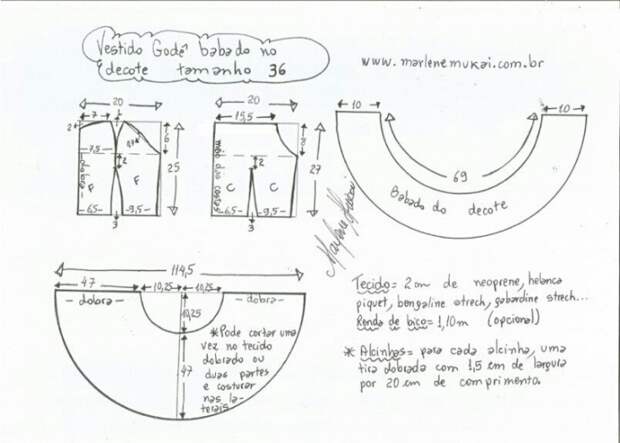 Vestido Godê babado no
decote tamanho 36
www.marlenemukai.com.br
20
7
2
6
7,5
2
25
F
F
6,5
9,5
3
20
15,5
8
2
27
meio das costas
C
C
6,5
9,5
3
10
10
69
Babado do decote
Marlene Mukai
114,5
47
10,25
10,25
- dobra -
- dobra -
10,25
47
*Pode cortar uma
vez no tecido
dobrado ou
duas partes
e costurar
nas la-
terais
Tecido = 2 cm de neoprene, helanca
piquet, bengaline strech, gabardine strech...
Renda de bico = 1,10m (opcional)
* Alcinhas = para cada alcinha, uma
tira dobrada com 1,5 cm de largura
por 20 cm de comprimento.